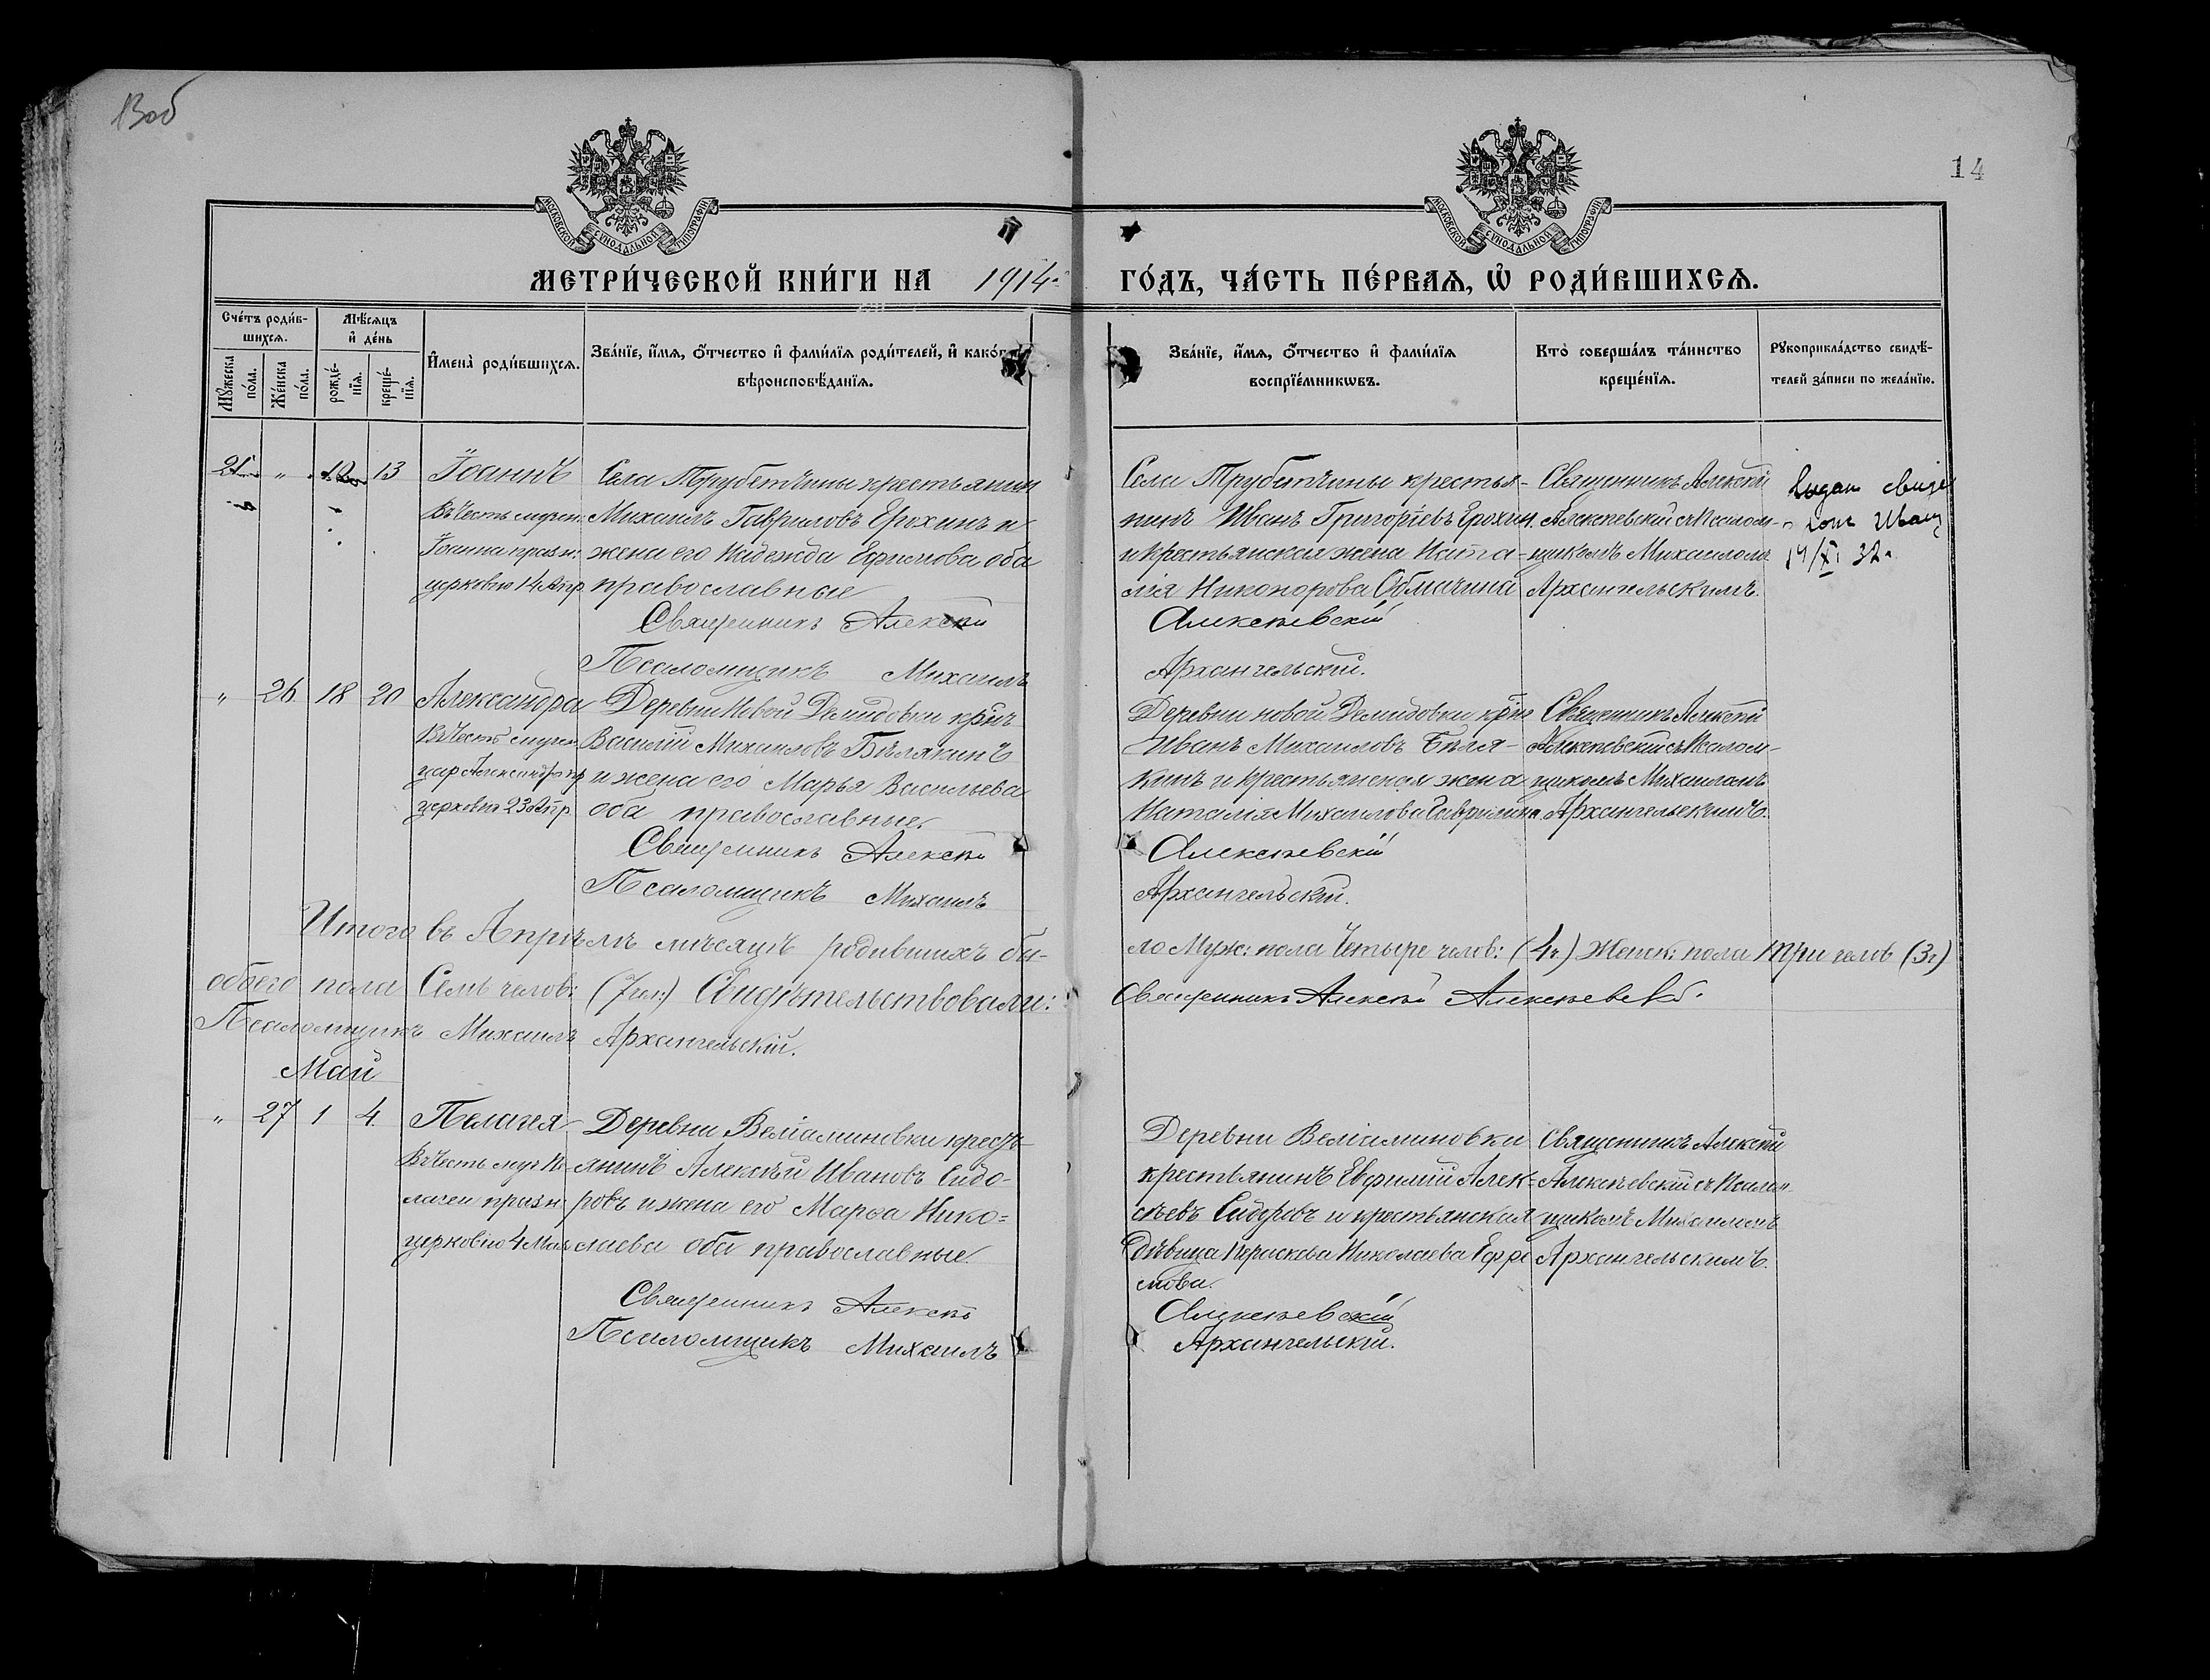 13об
14
МОСКОВСКОЙ СУНОДАЛЬНОЙ ТИПОГРАФІИ
МОСКОВСКОЙ СУНОДАЛЬНОЙ ТИПОГРАФІИ
МЕТРИ́ЧЕСКОЙ КНИ́ГИ НА 1914 ГО́ДЪ, ЧА́СТЬ ПЕ́РВАѦ, Ѡ҆ РОДИ́ВШИХСѦ.
Сче́тъ роди́в-
шихсѧ.
Мꙋ́жеска по́ла.
Же́нска по́ла.
Мѣ́сѧцъ
и҆ де́нь
рожде́-
нїѧ.
креще́-
нїѧ.
И҆мена̀ роди́вшихсѧ.
Зва́нїе, и҆́мѧ, ѻ҆́тчество и҆ фами́лїѧ роди́телей, и҆ како́г
вѣроисповѣ́данїѧ.
Зва́нїе, и҆́мѧ, ѻ҆́тчество и҆ фами́лїѧ
воспрїе́мникѡвъ.
Кто̀ соверша́лъ та́инство
креще́нїѧ.
Рꙋкоприкла́дство свидѣ́-
телей за́писи по жела́нїю.
21 " 12 13
Іоаннъ
Въ честь
Іоанна празн:
церковію 14 Апр.
Села Трубетчины крестьянин
Михаилъ Гавриловъ Ерохинъ и
жена его Надежда Ефимова оба
православные
Священникъ Алексѣй
Псаломщикъ Михаилъ
Села Трубетчины крестья-
нинъ Иванъ Григорїевъ Ерохин.
и крестьянская жена Ната-
лія Никонорова
Алексѣевскій
Архангельскій.
Священникъ Алексѣй
Алексѣевскій съ Псалом-
щикомъ Михаиломъ
Архангельскимъ.
Выдан свиде
Иван
14/XI 32.
" 26 18 20
Александра
Въ честь
цар Александры пр
церковію 23 Апр.
Деревни Новой Демидовки кр
Василій Михаиловъ Бѣлякинъ
и жена его Марья Васильева
оба православные.
Священникъ Алексѣй
Псаломщикъ Михаилъ
Деревни новой Демидовки кр
Иванъ Михаиловъ Бѣля-
кинъ и крестьянская жена
Наталія Михаилова Гаврилина
Алексѣевскій
Архангельскій.
Священникъ Алексѣй
Алексѣевскій съ Псалом-
щикомъ Михаиломъ
Архангельскимъ.
Итого въ Апрѣлѣ мѣсяцѣ родившихъ бы-
ло Муж: пола Четыре челов: (4ч.) Женск: пола три челов (3ч)
обоего пола Семь челов: (7чел:) Свидѣтельствовали:
Священникъ Алексѣй Алексѣевскій.
Псаломщикъ Михаилъ Архангельскій.
Май
" 27 1 4
Пелагея
Въ честь муч Пе-
лагеи празн
церковію 4 Мая
Деревни Веліаминовки кресть-
янинъ Алексѣй Ивановъ Сидо-
ровъ и жена его Марѳа Нико=
лаева оба православные.
Священникъ Алексѣй
Псаломщикъ Михаилъ
Деревни Веліаминовки
крестьянинъ Евфимій Алек=
сѣевъ Сидоровъ и крестьянская
дѣвица Параскева Николаева Ефре
мова.
Алексѣевскій
Архангельскій.
Священникъ Алексѣй
Алексѣевскій съ Псалом
щикомъ Михаиломъ
Архангельскимъ.